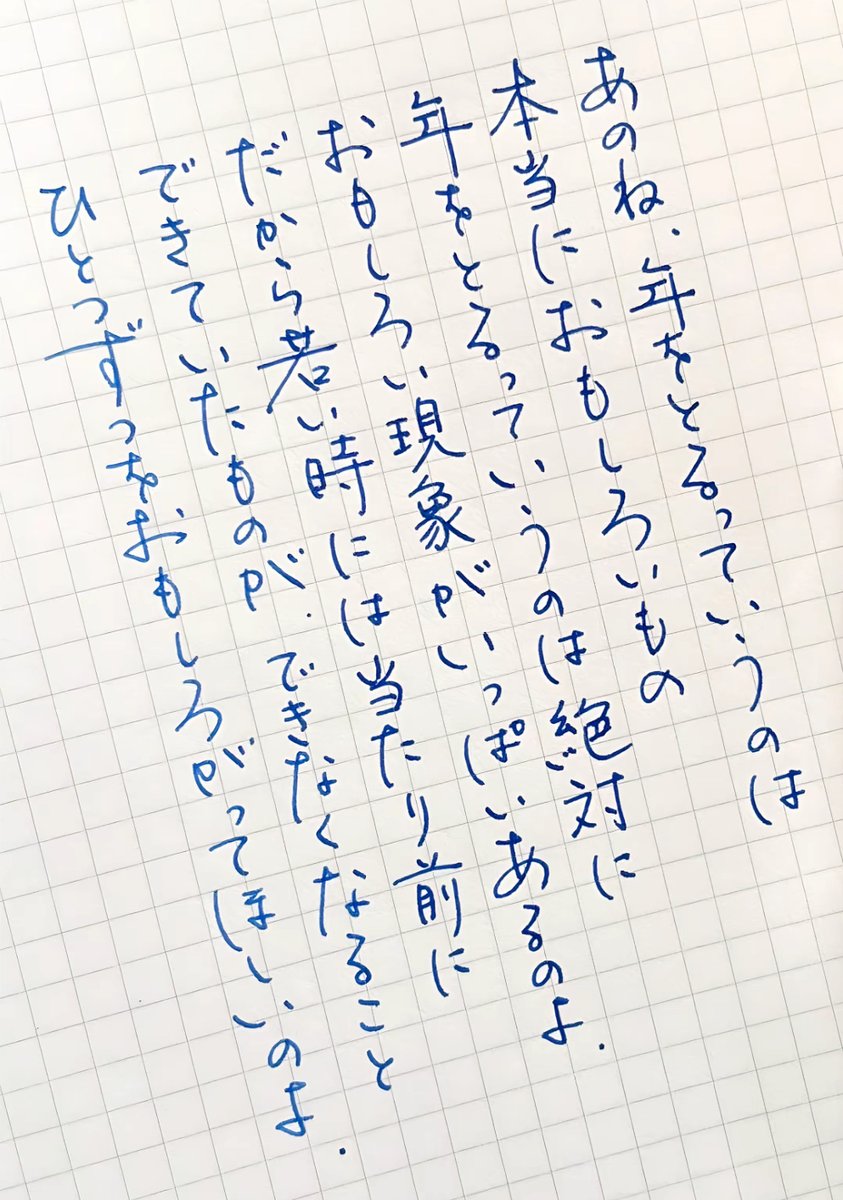 あのね、年をとるっていうのは
本当におもしろいもの
年をとるっていうのは絶対に
おもしろい現象がいっぱいあるのよ.
だから若い時には当たり前に
できていたものが、できなくなること
ひとつずつをおもしろがってほしいのよ.